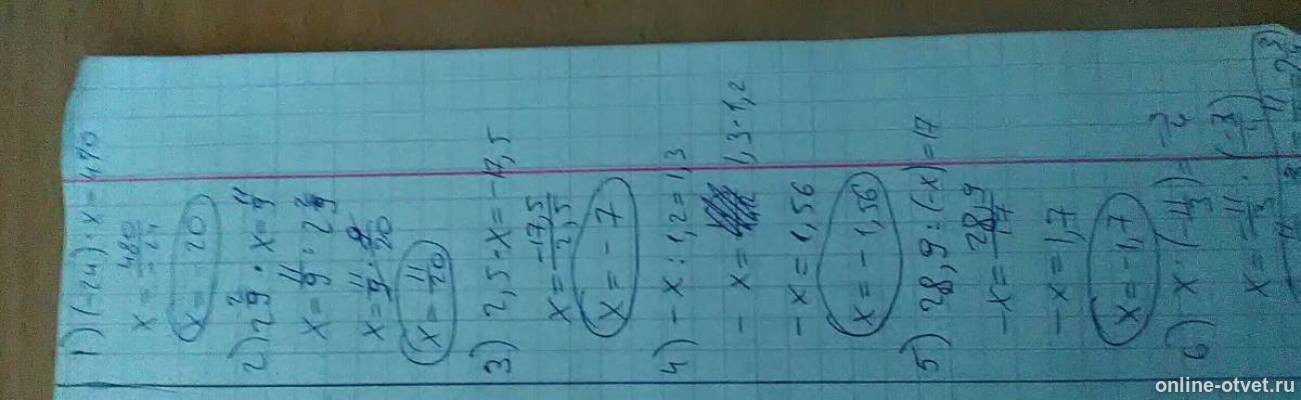 1) (-24) · x = 480
x = 480/-24
x = -20
2) 2 2/9 · x = 11/9
x = 11/9 : 2 2/9
x = 11/9 · 9/20
x = 11/20
3) 2,5 · x = -17,5
x = -17,5/2,5
x = -7
4) -x : 1,2 = 1,3
-x = 1,3 · 1,2
-x = 1,56
x = -1,56
5) 28,9 : (-x) = 17
-x = 28,9/17
-x = 1,7
x = -1,7
6) x
online-otvet.ru